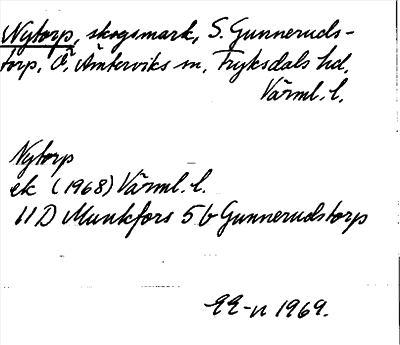 Nytorp, skogsmark, S. Gunneruds-
torp, Ö. Ämterviks sn, Fryksdals hd,
Värml. l.
Nytorp
ek (1968) Värml. l.
11 D Munkfors 5 b Gunnerudstorp
1969.